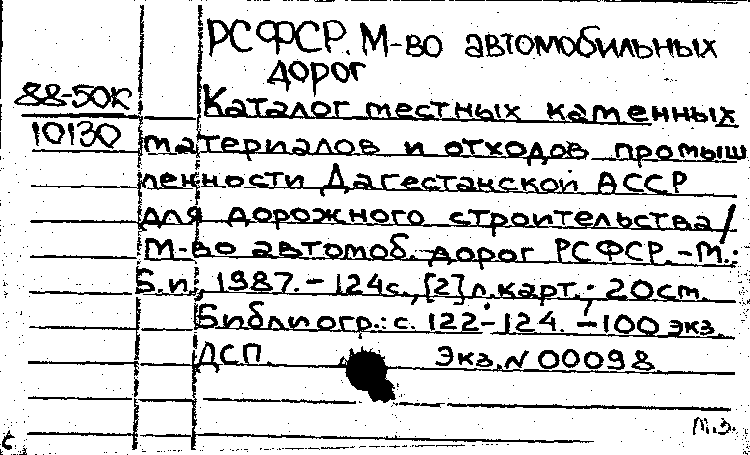 РСФСР. М-во автомобильных
дорог
88-50К
10130
Каталог местных каменных
материалов и отходов промыш
ленности Дагестанской АССР
для дорожного строительства/
М-во автомоб. дорог РСФСР.-М.:
Б.и., 1987.-124с.,[2]л.карт.; 20см.
Библиогр.: с. 122-124. -100 экз.
ДСП. Экз. N 00098
М.З.